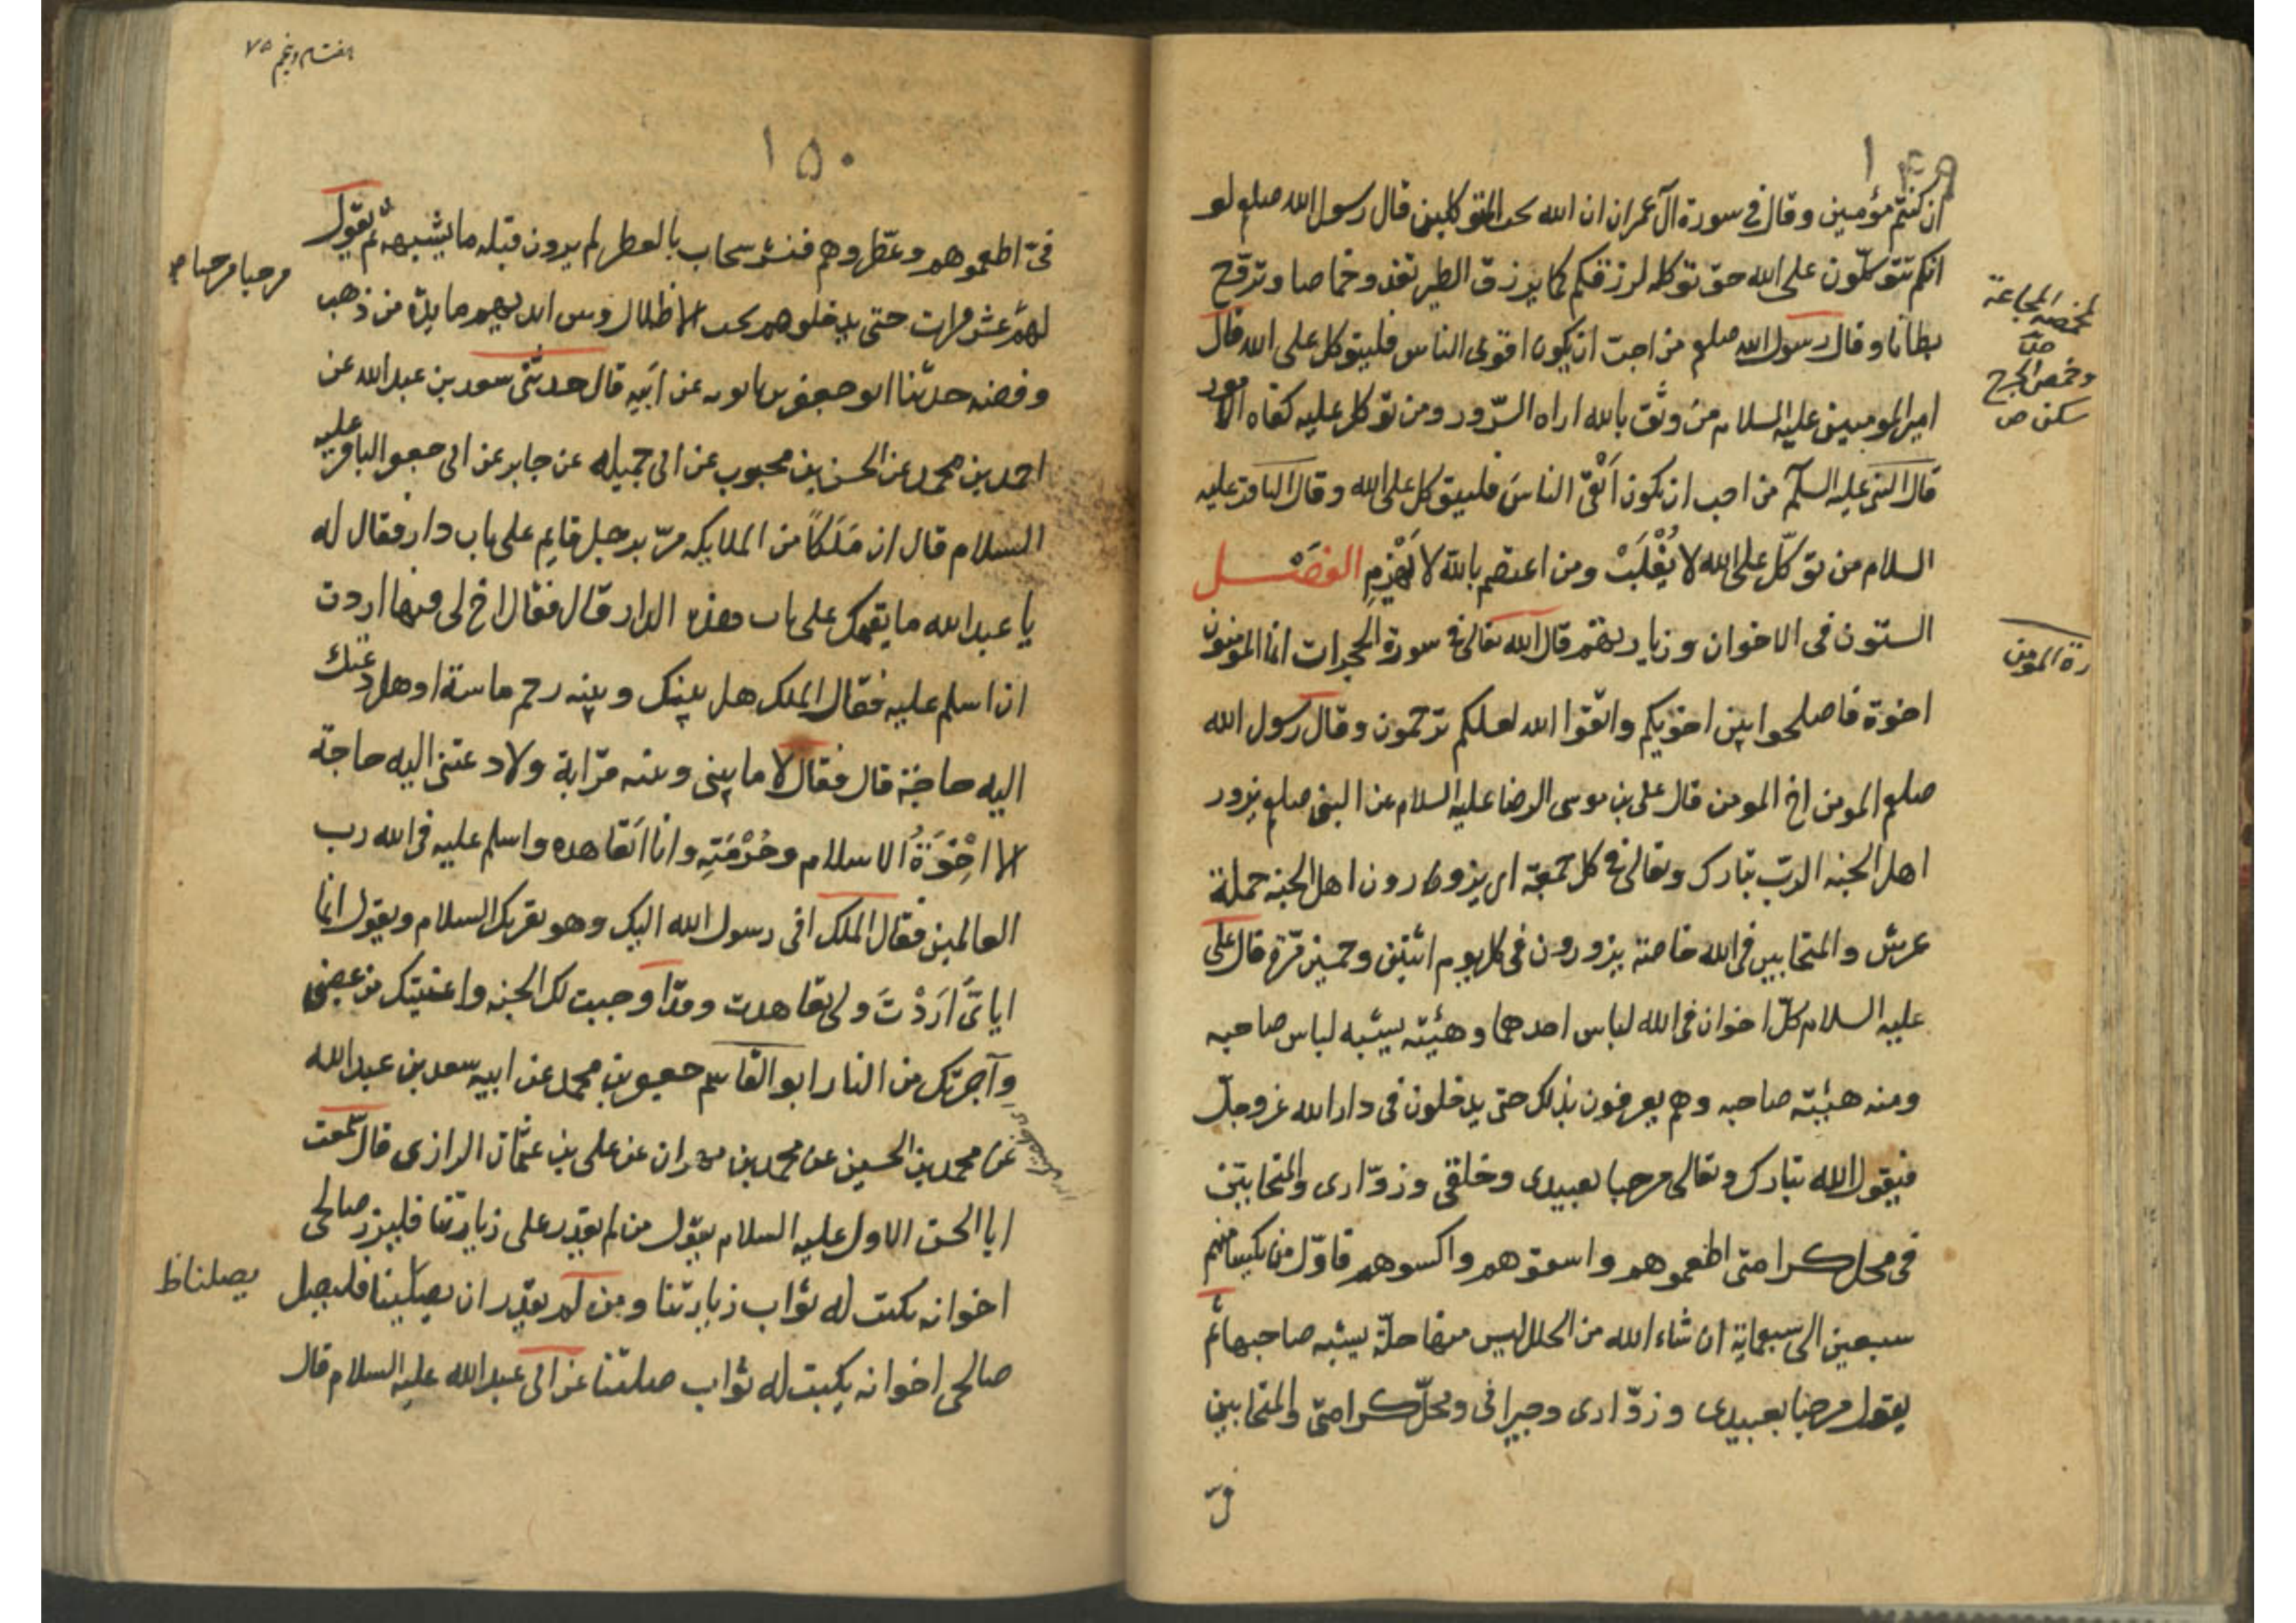 ١٤٩
ان كنتم مؤمنين وقال فى سورة آل عمران ان الله يحب المتوكلين قال رسول الله صلعم لو
انكم تتوكلون على الله حق توكله لرزقكم كما يرزق الطير تغدو خماصا وتروح
بطانا وقال رسول الله صلعم من احب ان يكون اقوى الناس فليتوكل على الله قال
امير المومنين عليه السلام من وثق بالله اراه السرور ومن توكل عليه كفاه الامور
قال النبى عليه السلم من احب ان يكون اتقى الناس فليتوكل على الله وقال الباقر عليه
السلام من توكل على الله لا يُغْلَبْ ومن اعتصم بالله لا يُهْزَمِ الفصل
الستون فى الاخوان وزيارتهم قال الله تعالى فى سورة الحجرات انما المومنون
اخوة فاصلحوا بين اخويكم واتقوا الله لعلكم ترحمون وقال رسول الله
صلعم المومن اخ المومن قال على بن موسى الرضا عليه السلام عن النبى صلعم يزور
اهل الجنه الرب تبارك وتعالى فى كل جمعة اى يزورون اهل الجنه حملة
عرش والمتحابين فى الله خاصة يزورون فى كل يوم اثنين وخمسين مرة قال على
عليه السلام كل اخوان فى الله لباس احدهما وهيئته يشبه لباس صاحبه
ومنه هيئته صاحبه وهم يعرفون بذلك حتى يدخلون فى دار الله عز وجل
فيقول الله تبارك وتعالى مرحبا بعبيدى وخلقى وزوارى والمتحابين
فى محل كرامتى اطعموهم واسقوهم واكسوهم فاول من يكسا منهم
سبعين الى سبعماية ان شاء الله من الحلل ليس منها حلة يشبه صاحبها ثم
يقول مرحبا بعبيدى وزوارى وجيرانى ومحل كرامتى والمتحابين
فىّ
لمخمصة المجاعة
وخمص الجرح
سكن ص
رة المومن
هفتاد وپنجم ٧٥
١٥٠
فىّ اطعموهم وعطروهم فنشر سحاب بالعطر لم يرون قبله ما يشبهه ثم يقول
لهم عشر مرات حتى يدخلوهم تحت الاظلال وبين ايديهم مايدة من ذهب
وفضه حدثنا ابو جعفر بن بابويه عن ابيه قال حدثنى سعد بن عبد الله عن
احمد بن محمد عن الحسن بن محبوب عن ابى جميله عن جابر عن ابى جعفر الباقر عليه
السلام قال ان مَلَكاً من الملايكه مرّ برجل قايم على باب دار فقال له
يا عبد الله ما يقيمك على باب هذه الدار قال فقال اخ لى فيها اردت
ان اسلم عليه فقال الملك هل بينك وبينه رحم ماسة او هل دعتك
اليه حاجة قال فقال لا ما بينى وبينه قرابة ولا دعتنى اليه حاجة
الا اخُوَّةُ الاسلام وحُرْمَتِه وانا اتعاهده واسلم عليه فى الله رب
العالمين فقال الملك انى رسول الله اليك وهو يقريك السلام ويقول انما
اياىَ اَرَدْتَ ولى تعاهدت وقد اوجبت لك الجنه واعفيتك من غضبى
وآجرتك من النار ابو القاسم جعفر بن محمد عن ابيه سعد بن عبد الله
عن محمد بن الحسين عن محمد بن مهران عن على بن عثمان الرازى قال سمعت
ابا الحسن الاول عليه السلام يقول من لم يقدر على زيارتنا فليزر صالحى
اخوانه يكتب له ثواب زيارتنا ومن لم يقدر ان يصلينا فليصل
صالحى اخوانه يكتب له ثواب صلتنا عن ابى عبد الله عليه السلام قال
مرحبا مرحبا ص
يصلنا ظ